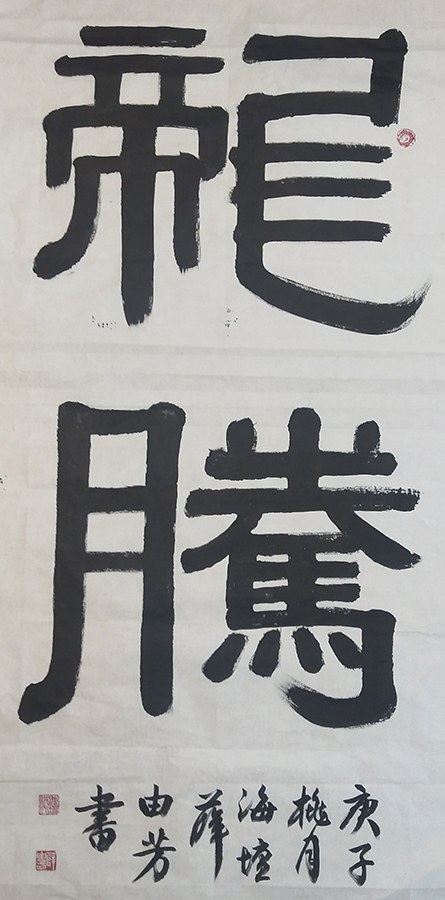 龍
騰
庚子
桃月
海壇
薛
由芳
書